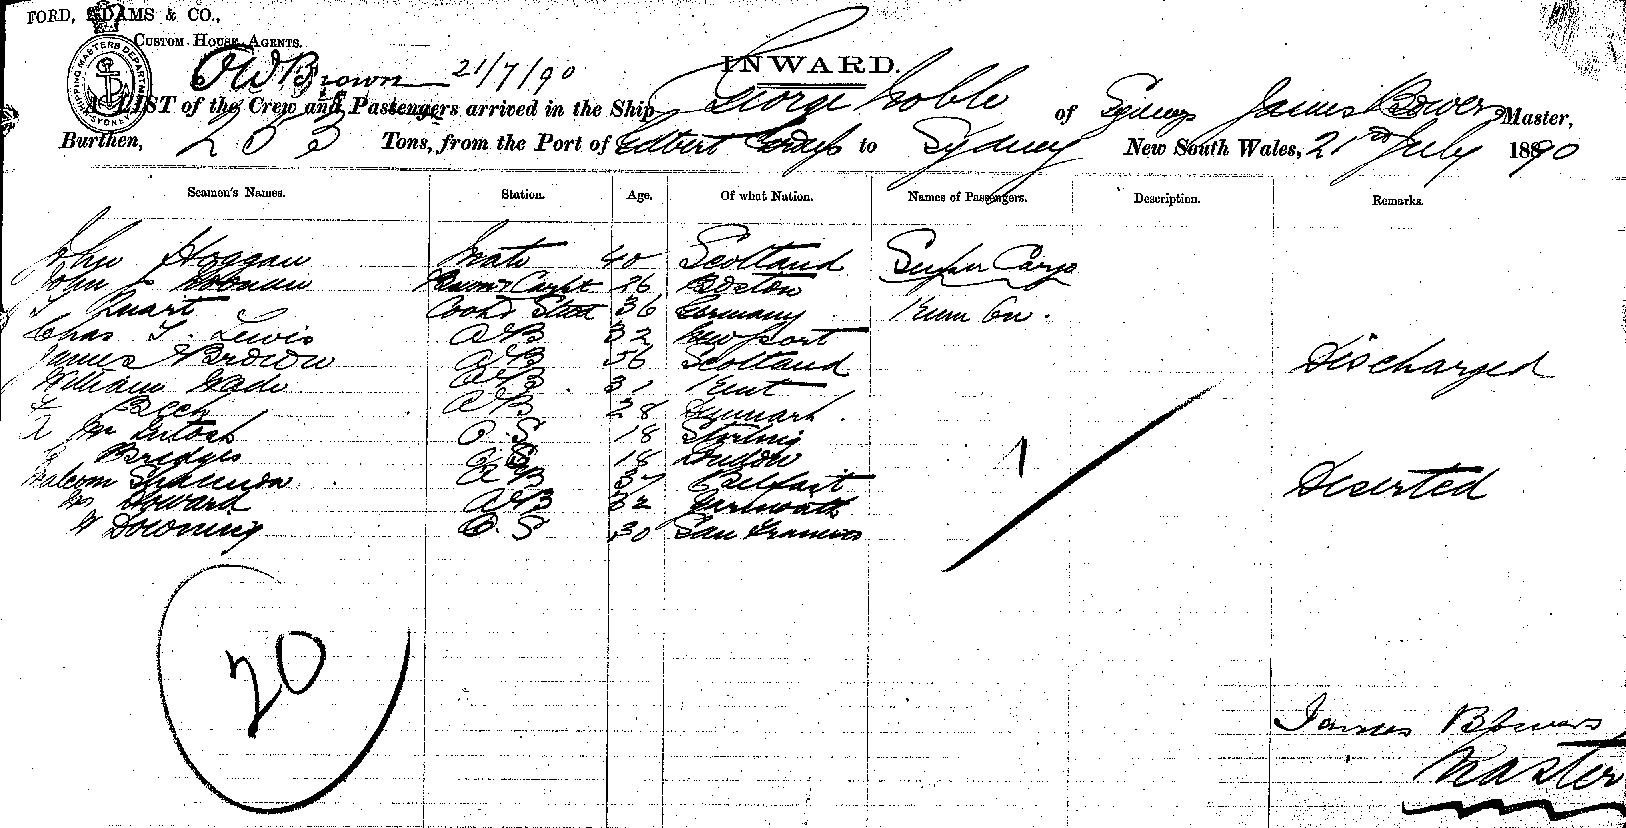 FORD, ADAMS & CO.,
CUSTOM HOUSE AGENTS.
SHIPPING MASTERS DEPARTMENT SYDNEY
Brown 21/7/90
INWARD.
A LIST of the Crew and Passengers arrived in the Ship George Noble of Sydney James Bowers Master,
Burthen, Tons, from the Port of to Sydney New South Wales, 21st July 1890
Seamen's Names. Station. Age. Of what Nation. Names of Passengers. Description. Remarks.
John Hoggan Mate 40 Scotland Super Cargo
John 26 Boston
Quart Cook & Stew 36 Germany
Chas T. Lewis AB 32 Newport
James Brown AB 56 Scotland Discharged
William Wade AB 31 Kent
Beck AB 28 Denmark
McIntosh O.S 18 Stirling
Bridges 18 London
Malcom AB 37 Belfast Deserted
Howard AB 32 Yarmouth
W Downing O.S 30 San Francisco
1
20
James Bowers
Master